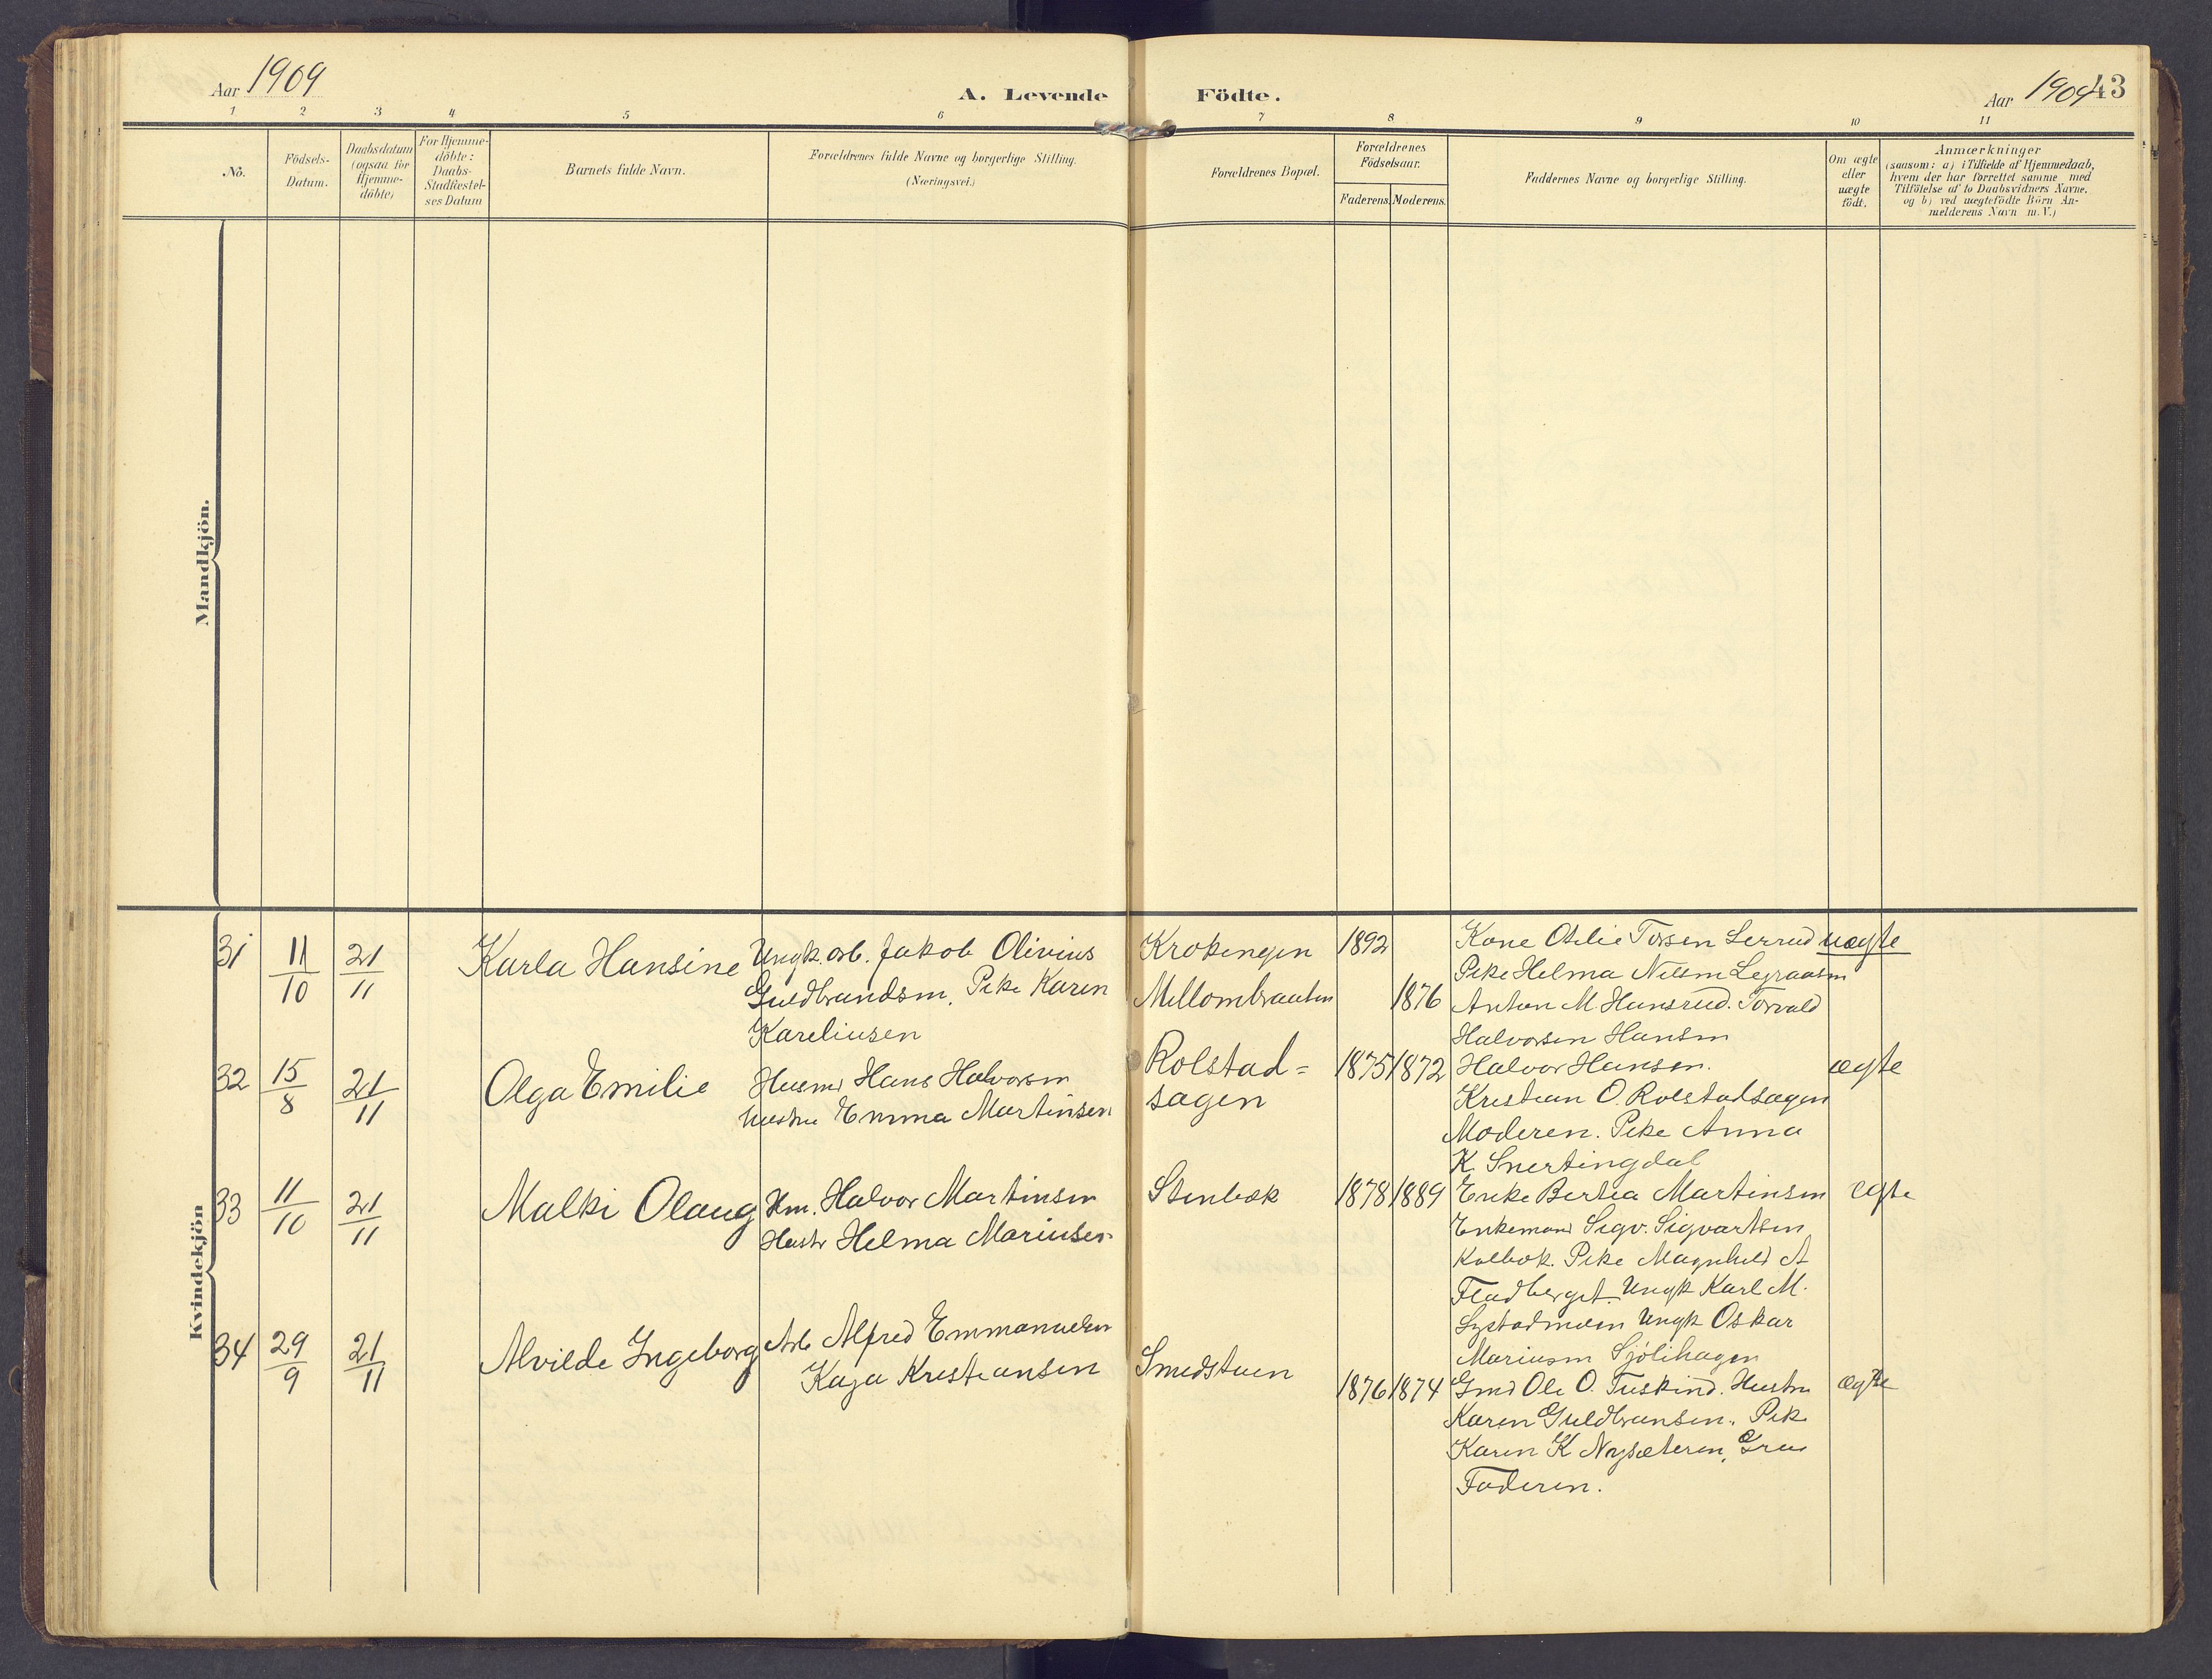 Aar 1909
A. Levende Födte.
Aar 1909 43
1 2 3 4 5 6 7 8 9 10 11
No.
Födsels-
Datum.
Daabsdatum
(ogsaa for
Hjemme-
döbte)
For Hjemme-
döbte:
Daabs-
Stadfæstel-
ses Datum
Barnets fulde Navn.
Forældrenes fulde Navne og borgerlige Stilling.
(Næringsvei.)
Forældrenes Bopæl.
Forældrenes
Födselsaar.
Faderens. Moderens.
Faddernes Navne og borgerlige Stilling.
Om ægte
eller
uægte
födt.
Anmærkninger
(saasom: a) i Tilfælde af Hjemmedaab,
hvem der har forrettet samme med
Tilföielse af to Daabsvidners Navne.
og b) ved uægtefödte Börn An-
melderens Navn m. V.)
Mandkjön.
Kvindekjön
31 11/10 21/11 Karla Hansine
Ungk. arb. Jakob Olivius
Guldbrandsen, Pike Karen
Kareliusen
Krokengen 1892
Mellombraaten 1876
Kone Otilie Torsen Lerrud
Pike Helma Nilsen
Anton M. Hansrud. Torvald
Halvorsen Hansen
uægte
32 15/8 21/11 Olga Emilie
Husmd Hans Halvorsen
Hustru Emma Martinsen
Rolstad=
sagen
1875 1872
Halvor Hansen.
Kristian O. Rolstadsagen
Moderen. Pike Anna
K. Snertingdal
ægte
33 11/10 21/11 Malki Olaug
Hm. Halvor Martinsen
Hustr Helma Mariusen
Stenbæk 1878 1889
Enke Bertea Martinsen
Enkemand Sigv. Sigvartsen
Kolbæk. Pike Magnhild A
Fladberget. Ungk Karl M.
Ungk Oskar
Mariusen Sjölihagen
ægte
34 29/9 21/11 Alvilde Ingeborg
Arb Alfred Emmanuelsen
Kaja Kristiansen
Smedstuen
1876 1874
Gmd Ole O. Tuskind. Hustru
Karen Guldbransen. Pik
Karen K Nysæteren,
Faderen.
ægte